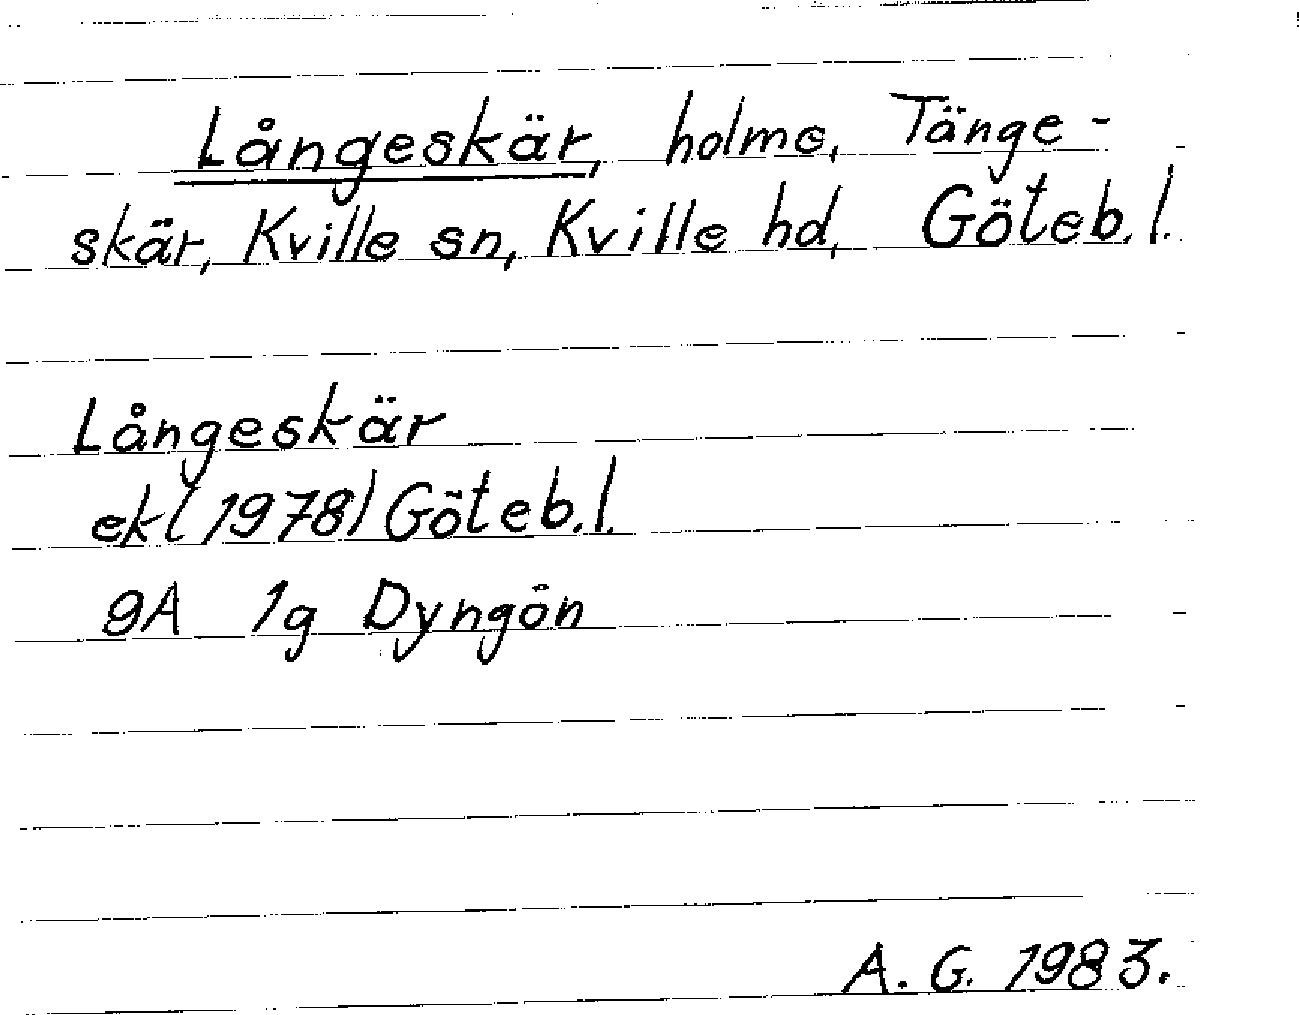 Långeskär, holme, Tänge-
skär, Kville sn, Kville hd, Göteb. l.
Långeskär
ek (1978) Göteb. l.
9A 1g Dyngön
A. G. 1983.